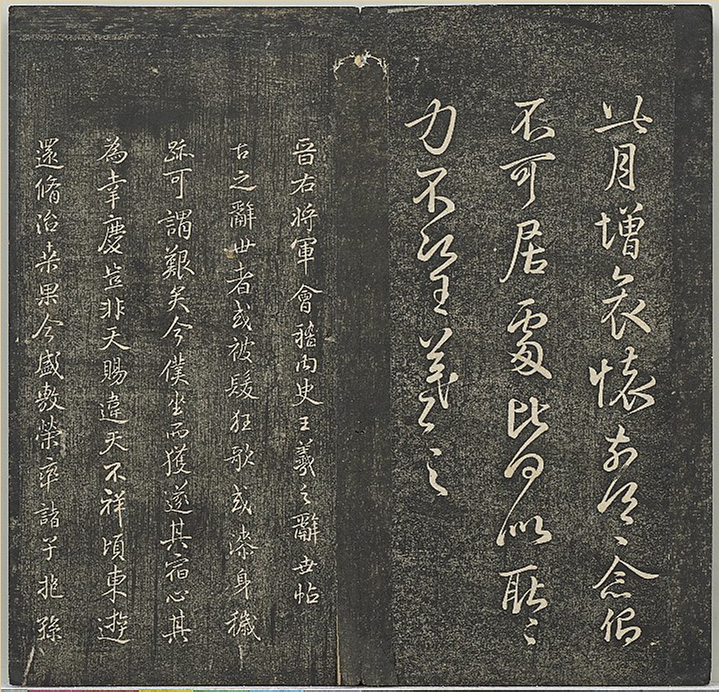 此月增哀懷念
不可居處比何似耿〻
力不次王羲之
晉右將軍會稽內史王羲之辭世帖
古之辭世者或被髮狂歌或漆身穢
跡可謂艱矣今僕坐而獲遂其宿心其
為幸慶豈非天賜違天不祥頃東遊
還脩治桒果今盛敷榮率諸子抱孫